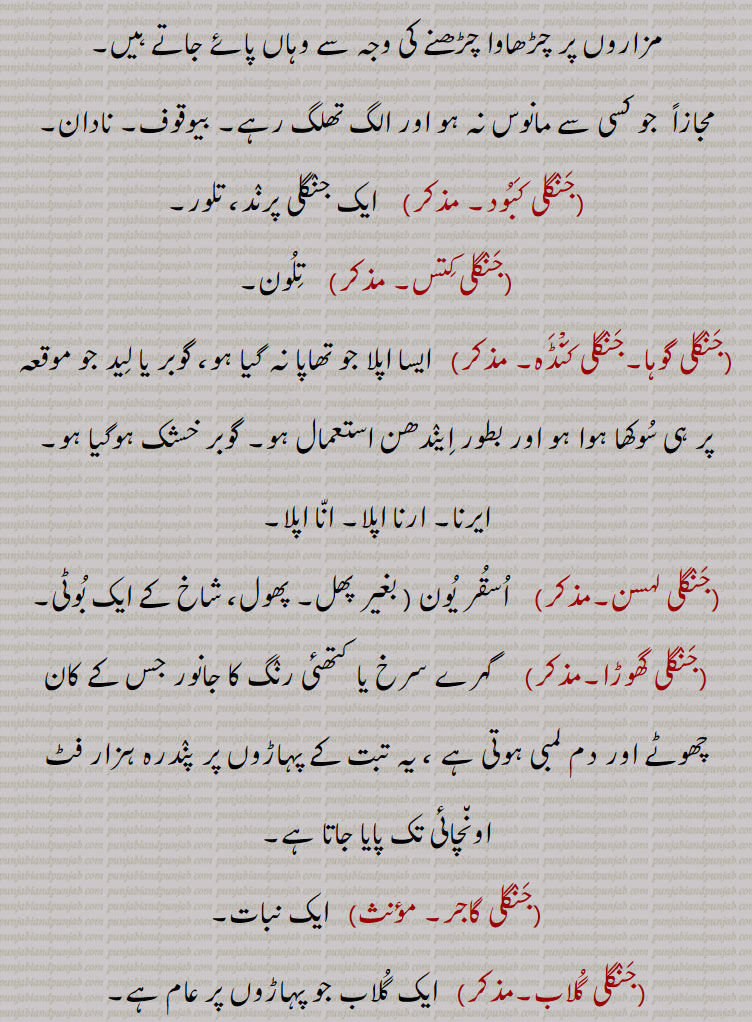 مزاروں پر چڑھاوا چڑھنے کی وجہ سے وہاں پائے جاتے ہیں۔
مجازاً جو کسی سے مانوس نہ ہو اور الگ تھلگ رہے۔ بیوقوف۔ نادان۔
(جَنْگلی کَبُود۔ مذکر) ایک جنْگلی پرنْد، تلور۔
(جَنْگلی کِتس۔ مذکر) تِلُون۔
(جَنْگلی گوہا۔جَنْگلی کَنْڈَہ۔ مذکر) ایسا اپلا جو تھاپا نہ گیا ہو، گوبر یا لِید جو موقعہ
پر ہی سُوکھا ہوا ہو اور بطور اِینْدھن استعمال ہو۔ گوبر خشک ہوگیا ہو۔
ایرنا۔ ارنا اپلا۔ انّا اپلا۔
(جَنْگلی لہسن۔مذکر) اُسقُر یُون (بغیر پھل۔ پھول، شاخ کے ایک بُوٹی۔
(جَنْگلی گھوڑا۔مذکر) گہرے سرخ یا کتھئی رنْگ کا جانور جس کے کان
چھوٹے اور دم لمبی ہوتی ہے ، یہ تبت کے پہاڑوں پر پنْدرہ ہزار فٹ
اونْچائی تک پایا جاتا ہے۔
(جَنْگلی گاجر۔ مؤنث) ایک نبات۔
(جَنْگلی گُلاب۔مذکر) ایک گُلاب جو پہاڑوں پر عام ہے۔